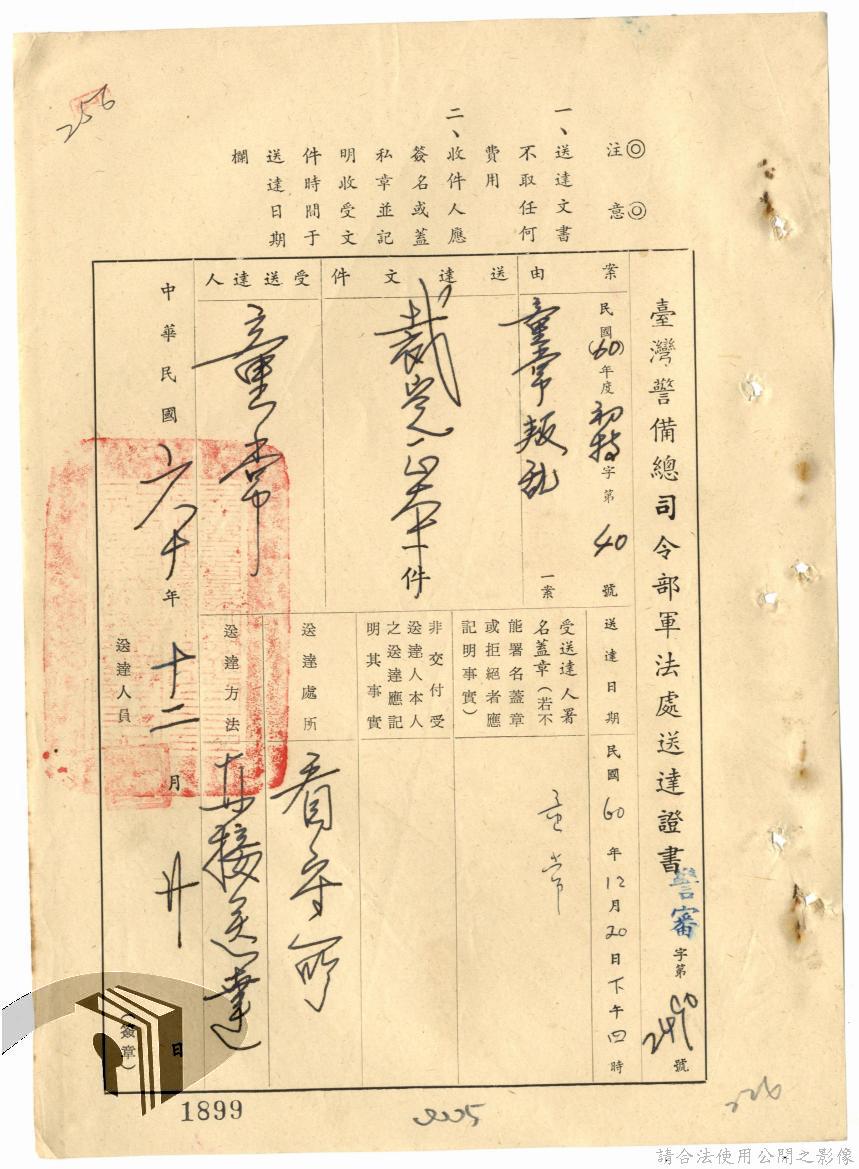 256
◎注意◎
一、送達文書
不取任何
費用
二、收件人應
簽名或蓋
私章並記
明收受文
件時間于
送達日期
欄
臺灣警備總司令部軍法處送達證書警審字第2490號
案由
民國(60)年度初特字第40號
童常叛乱
一案
送達文件
裁定正本一件
受送達人
童常
送達日期
民國60年12月20日下午四時
受送達人署
名蓋章（若不
能署名蓋章
或拒絕者應
記明事實）
童常
非交付受
送達人本人
之送達應記
明其事實
送達處所
看守所
送達方法
直接送達
中華民國六十年十二月廿日
送達人員
（簽章）
1899
226
請合法使用公開之影像